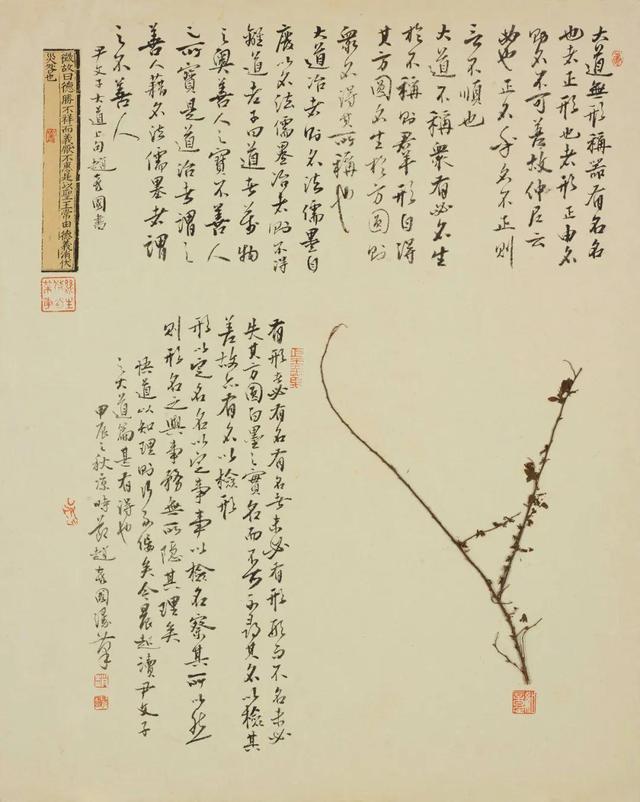 大道無形稱器有名名
也者正形也者形正由名
則名不可差故仲尼云
必也正名乎名不正則
言不順也
大道不稱衆有必名生
於不稱則羣形自得
其方圓名生於方圓則
衆名得其所稱也
大道治者則名法儒墨自
廢以名法儒墨治者則不得
離道老子曰道者萬物
之奧善人之寶不善人
之所寶是道治者謂之
善人藉名法儒墨者謂
之不善人
尹文子大道上句趙國書
徵故曰德勝不祥而義厭不惠是以聖王常由德義消伏
災咎也
有形者必有名有名者未必有形形而不名未必
失其方圓白墨之實名而不可尋其名以檢其
差故亦有名以檢形
形以定名名以定事事以檢名察其所以然
則形名之與事務無所隱其理矣
悟道以知理則行不偏矣今晨起讀尹文子
之大道篇甚有得也
甲辰之秋涼時節趙國漫筆